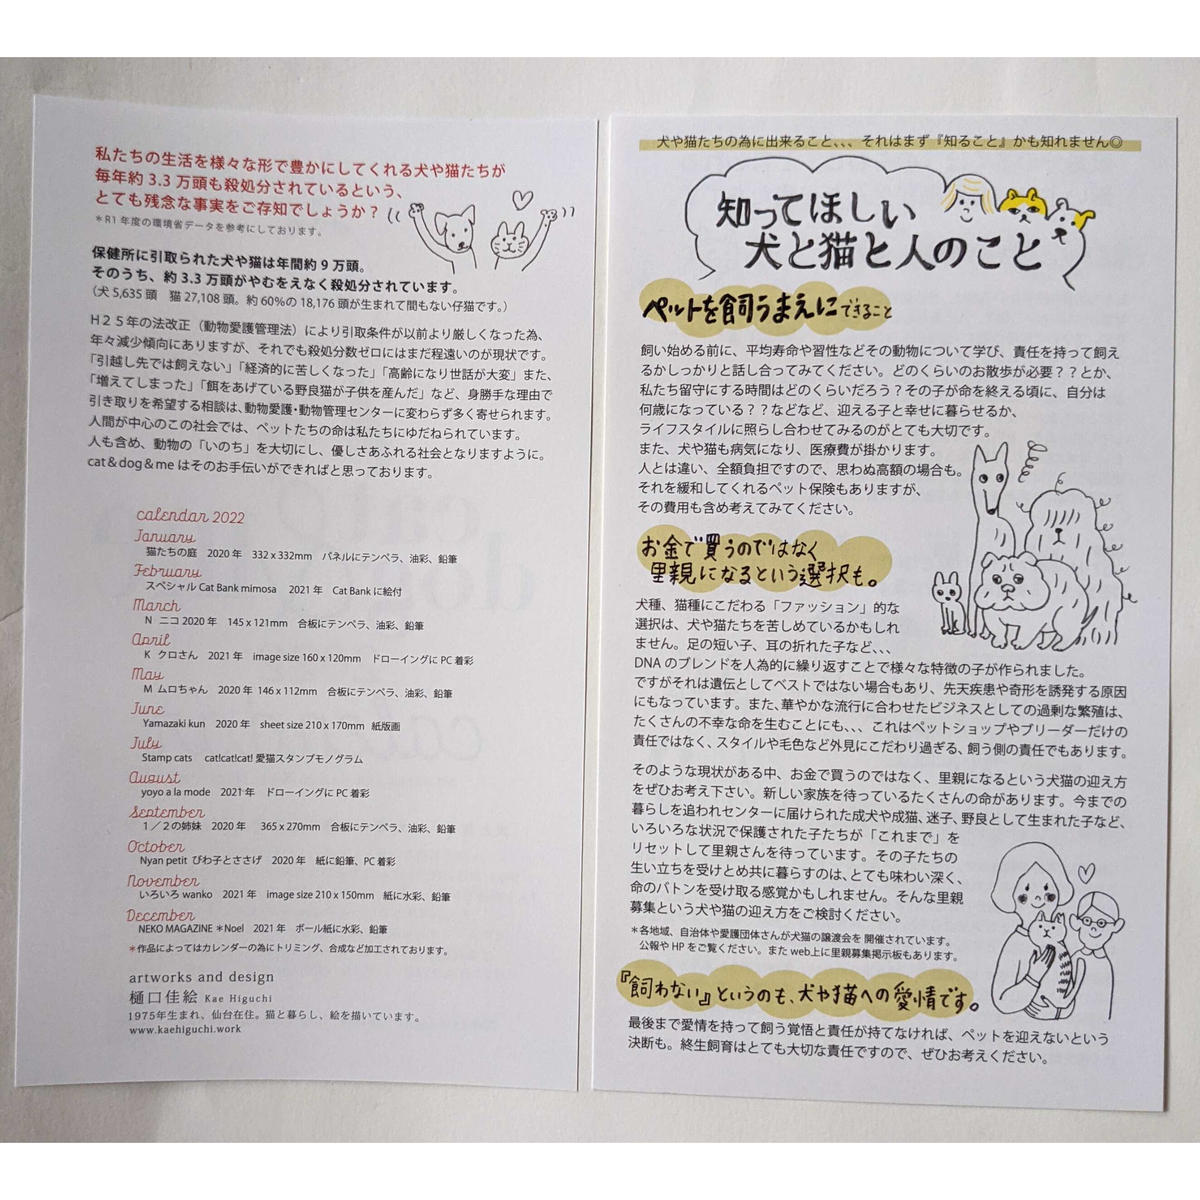 私たちの生活を様々な形で豊かにしてくれる犬や猫たちが
毎年約3.3万頭も殺処分されているという、
とても残念な事実をご存知でしょうか？
＊R1年度の環境省データを参考にしております。
保健所に引取られた犬や猫は年間約9万頭。
そのうち、約3.3万頭がやむをえなく殺処分されています。
（犬5,635頭　猫27,108頭。約60%の18,176頭が生まれて間もない仔猫です。）
H25年の法改正（動物愛護管理法）により引取条件が以前より厳しくなった為、
年々減少傾向にありますが、それでも殺処分数ゼロにはまだ程遠いのが現状です。
「引越し先では飼えない」「経済的に苦しくなった」「高齢になり世話が大変」また、
「増えてしまった」「餌をあげている野良猫が子供を産んだ」など、身勝手な理由で
引き取りを希望する相談は、動物愛護・動物管理センターに変わらず多く寄せられます。
人間が中心のこの社会では、ペットたちの命は私たちにゆだねられています。
人も含め、動物の「いのち」を大切にし、優しさあふれる社会となりますように。
cat＆dog＆meはそのお手伝いができればと思っております。
calendar 2022
January
猫たちの庭　2020年　332x332mm　パネルにテンペラ、油彩、鉛筆
February
スペシャルCat Bank mimosa　2021年　Cat Bankに絵付
March
N　ニコ 2020年　145x121mm　合板にテンペラ、油彩、鉛筆
April
K　クロさん　2021年　image size 160x120mm　ドローイングにPC着彩
May
M　ムロちゃん　2020年 146x112mm　合板にテンペラ、油彩、鉛筆
June
Yamazaki kun　2020年　sheet size 210x170mm　紙版画
July
Stamp cats　cat!cat!cat! 愛猫スタンプモノグラム
August
yoyo a la mode　2021年　ドローイングにPC着彩
September
1／2の姉妹　2020年　365x270mm　合板にテンペラ、油彩、鉛筆
October
Nyan petit びわ子とささげ　2020年　紙に鉛筆、PC着彩
November
いろいろwanko　2021年　image size 210x150mm　紙に水彩、鉛筆
December
NEKO MAGAZINE＊Noel　2021年　ボール紙に水彩、鉛筆
＊作品によってはカレンダーの為にトリミング、合成など加工されております。
artworks and design
樋口佳絵 Kae Higuchi
1975年生まれ、仙台在住。猫と暮らし、絵を描いています。
www.kaehiguchi.work
犬や猫たちの為に出来ること、、、それはまず『知ること』かも知れません◎
知ってほしい
犬と猫と人のこと
ペットを飼うまえにできること
飼い始める前に、平均寿命や習性などその動物について学び、責任を持って飼え
るかしっかりと話し合ってみてください。どのくらいのお散歩が必要？？とか、
私たち留守にする時間はどのくらいだろう？その子が命を終える頃に、自分は
何歳になっている？？などなど、迎える子と幸せに暮らせるか、
ライフスタイルに照らし合わせてみるのがとても大切です。
また、犬や猫も病気になり、医療費が掛かります。
人とは違い、全額負担ですので、思わぬ高額の場合も。
それを緩和してくれるペット保険もありますが、
その費用も含め考えてみてください。
お金で買うのではなく
里親になるという選択も。
犬種、猫種にこだわる「ファッション」的な
選択は、犬や猫たちを苦しめているかもしれ
ません。足の短い子、耳の折れた子など、、、
DNAのブレンドを人為的に繰り返すことで様々な特徴の子が作られました。
ですがそれは遺伝としてベストではない場合もあり、先天疾患や奇形を誘発する原因
にもなっています。また、華やかな流行に合わせたビジネスとしての過剰な繁殖は、
たくさんの不幸な命を生むことにも、、、これはペットショップやブリーダーだけの
責任ではなく、スタイルや毛色など外見にこだわり過ぎる、飼う側の責任でもあります。
そのような現状がある中、お金で買うのではなく、里親になるという犬猫の迎え方
をぜひお考え下さい。新しい家族を待っているたくさんの命があります。今までの
暮らしを追われセンターに届けられた成犬や成猫、迷子、野良として生まれた子など、
いろいろな状況で保護された子たちが「これまで」を
リセットして里親さんを待っています。その子たちの
生い立ちを受けとめ共に暮らすのは、とても味わい深く、
命のバトンを受け取る感覚かもしれません。そんな里親
募集という犬や猫の迎え方をご検討ください。
＊各地域、自治体や愛護団体さんが犬猫の譲渡会を 開催されています。
公報やHPをご覧ください。またweb上に里親募集掲示板もあります。
『飼わない』というのも、犬や猫への愛情です。
最後まで愛情を持って飼う覚悟と責任が持てなければ、ペットを迎えないという
決断も。終生飼育はとても大切な責任ですので、ぜひお考えください。